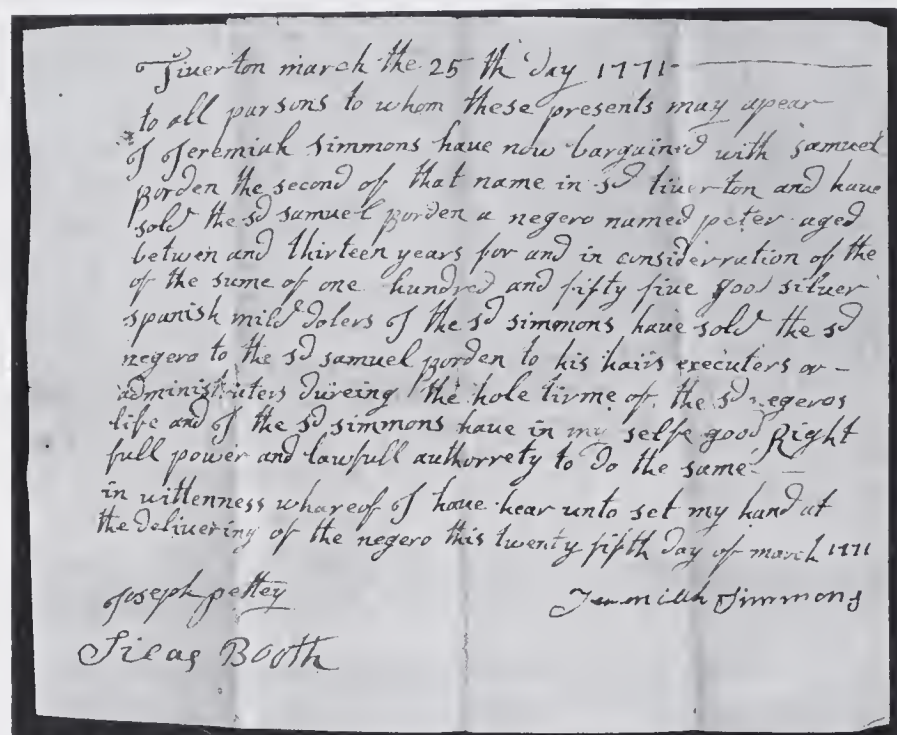 Tiverton march the 25 th day 1771
to all parsons to whom these presents may apear
I Jeremiah Simmons have now bargained with Samuel
Borden the second of that name in sd tiverton and have
sold the sd samuel Borden a negero named peter aged
betwen and thirteen years for and in considerration of the
of the sume of one hundred and fifty five good silver
spanish mild dolers I the sd simmons have sold the sd
negero to the sd samuel Borden to his hairs executers or
administraters dureing the hole tirme of the sd negeros
life and I the sd simmons have in my selfe good Right
full power and lawfull authorrety to do the same
in wittenness whareof I have hear unto set my hand at
the delivering of the negero this twenty fifth day of march 1771
Joseph pettey
Jeremiah Simmons
Silas Booth